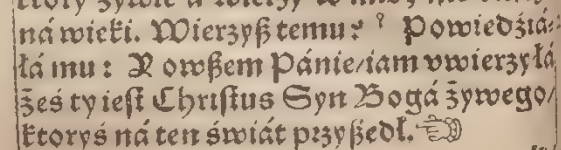 który żywie a wierzy w mię, nie
ná wieki. Wierzyß temu? Powiedźiá⸗
łá mu: Y owßem Pánie/iam vwierzyłá
żeś ty ieſt Chriſtus Syn Bogá żywego/
ktoryś ná ten świát przyßedł. ☜